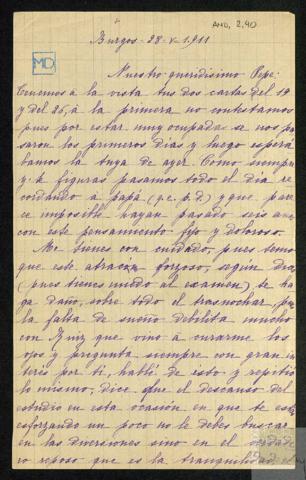 AMD, 2,40
MD
Burgos - 28 - V - 1911
Nuestro queridísimo Pepe:
Tenemos á la vista tus dos cartas del 19
y del 25, á la primera no contestamos
pues por estar muy ocupada se nos pa
saron los primeros dias y luego espera
bamos la tuya de ayer. Como siempre
y te figuras pasamos todo el dia re
cordando á papá (q. e. p. d.) y que pare
ce imposible hayan pasado seis años
con este pensamiento fijo y doloroso.
Me tienes con cuidado, pues temo
que este atracón forzoso, según dices
(pues tienes miedo al examen) te ha
ga daño, sobre todo el trasnochar, pues
la falta de sueño debilita mucho
con Ruiz que vino á curarme los
ojos y pregunta siempre con gran in
teres por ti, hablé de esto y repitió
lo mismo, dice que el descanso del
estudio en esta ocasión en que te estás
esforzando un poco no le debes buscar
en las diversiones sino en el verdade
ro reposo que es la tranquilidad